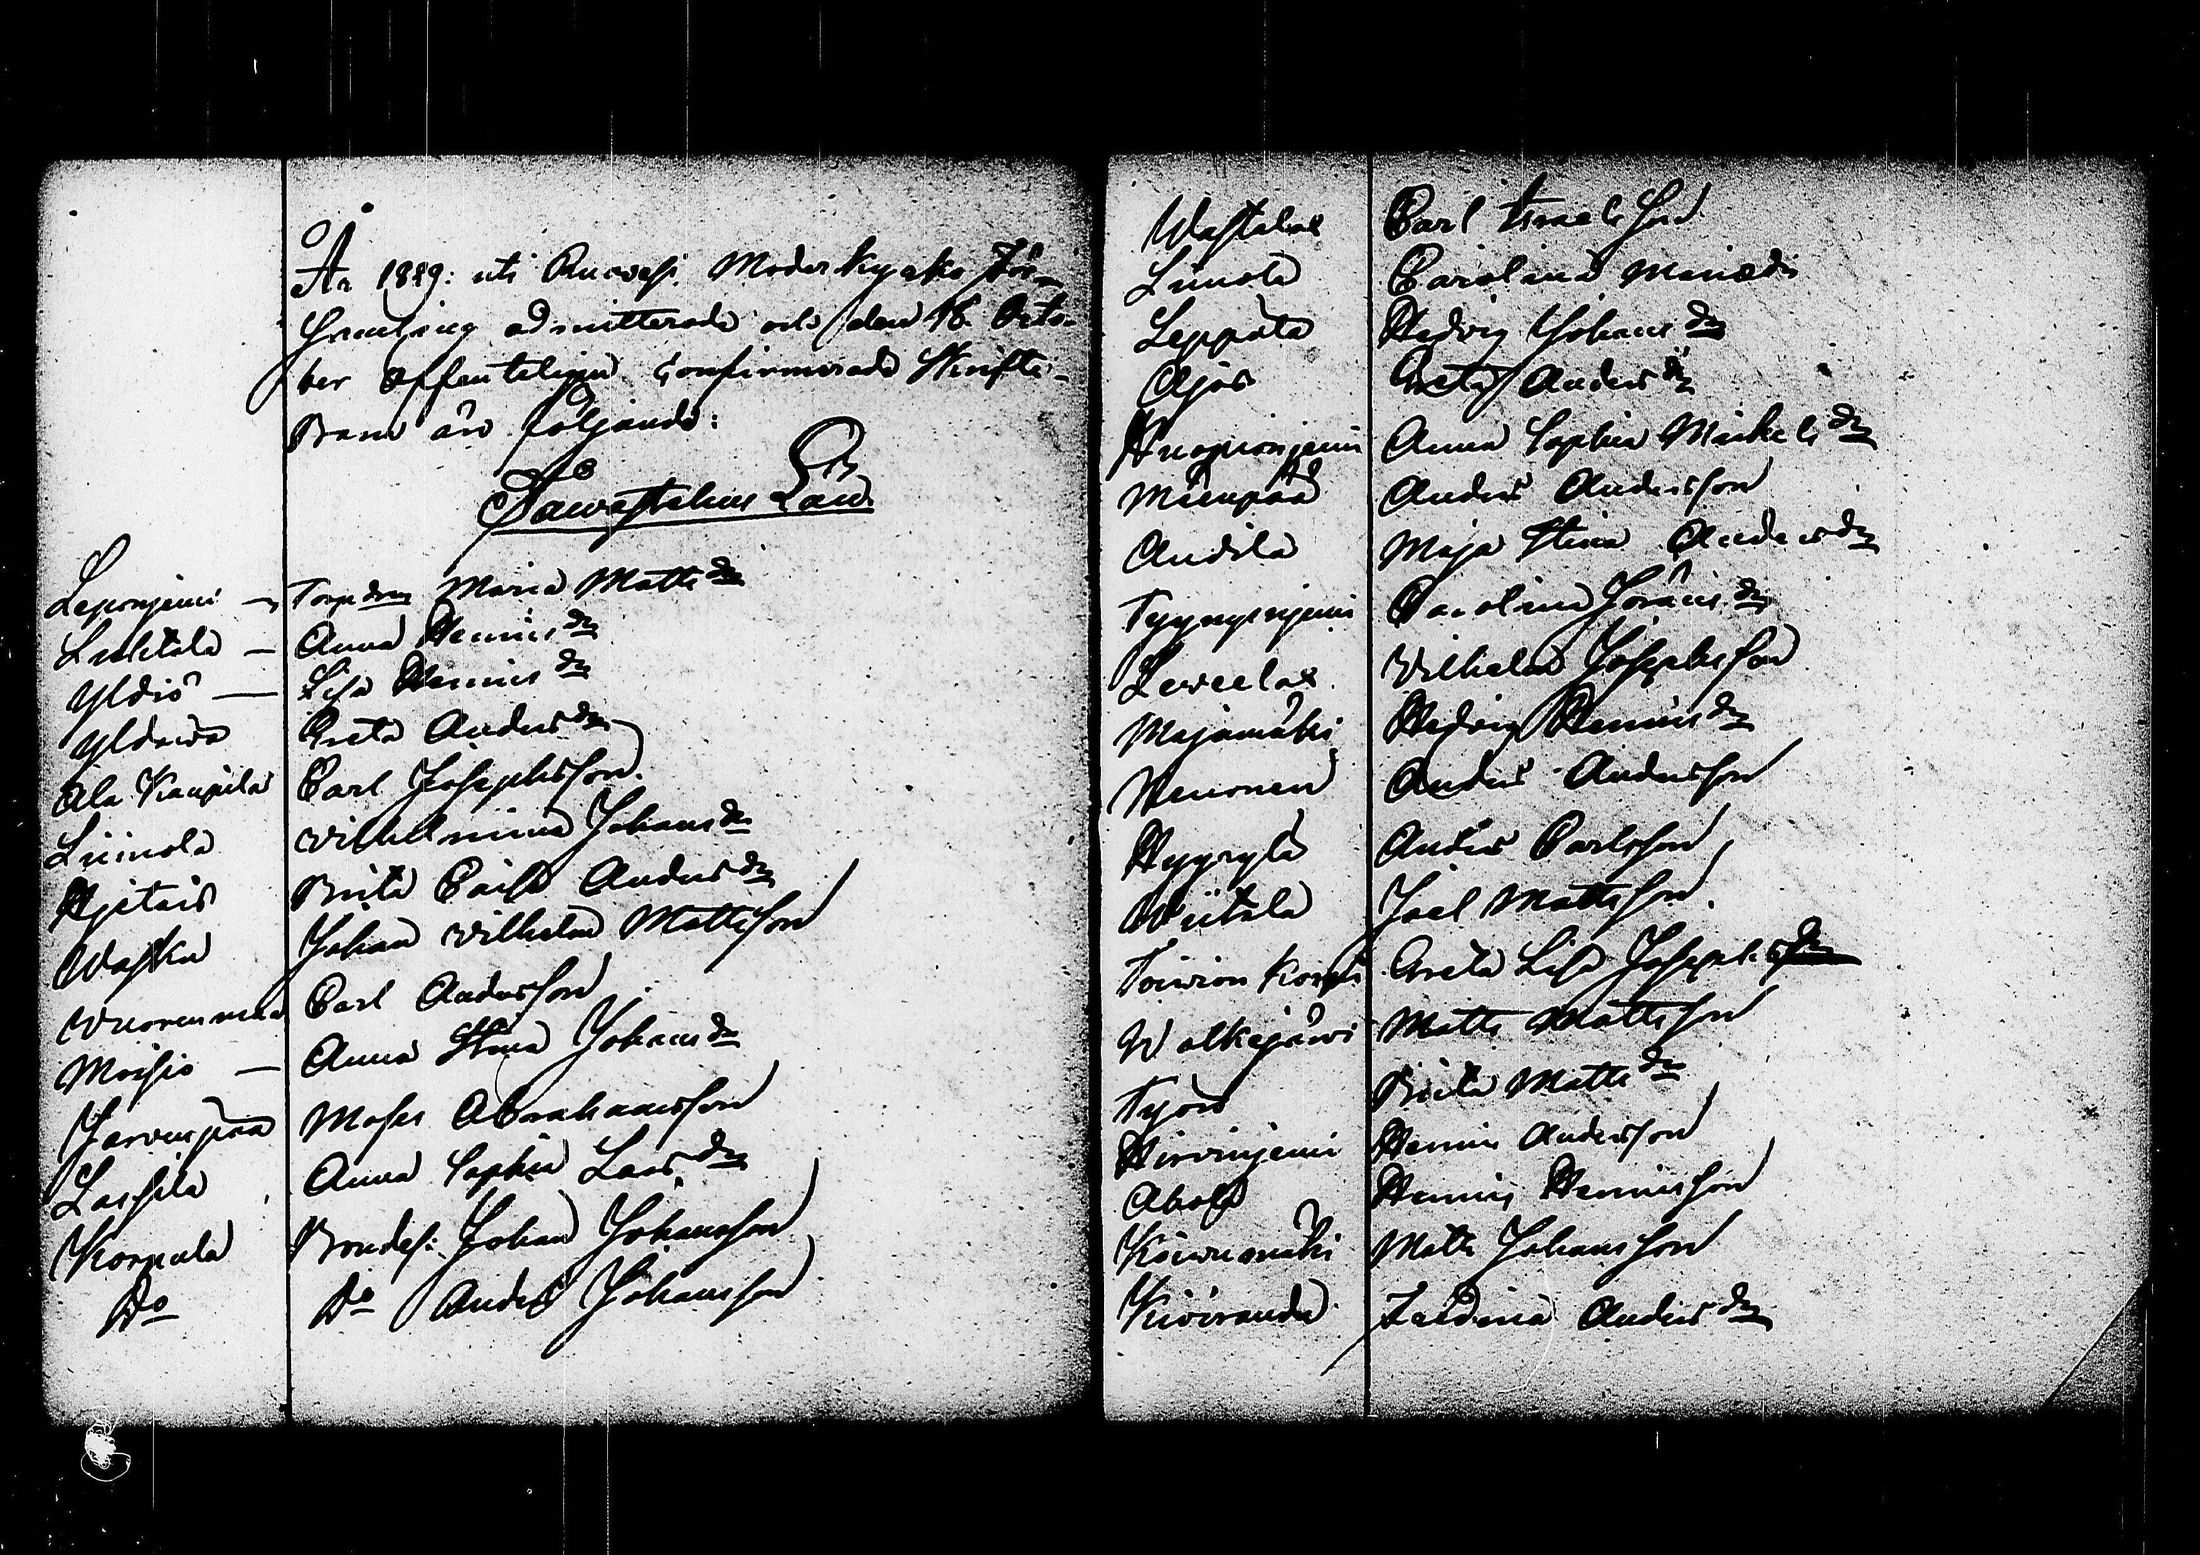 År 1889: uti Ruovesi Moderkyrko För-
samling admitterade och den 18. Octo-
ber offenteligen confirmerade Skrifte-
Barn äro följande:
Tawastehus Län.
Leponjemi — Torp dren Maria Matts dr
Luktala — Anna Henrics dr
Yldiö — Lisa Henrics dr
Greta Anders dr
Ala Kaupila Carl Josephsson
Liinola Vilhelmina Johans dr
Brita Caisa Anders dr
Johan Vilhelm Mattsson
Vuorenmaa Carl Andersson
Moisio — Anna Stina Johans dr
Järvenpää Moses Abrahamsson
Lassila Anna Sophia Lars dr
Korpula Bondes: Johan Johansson
Do Do Anders Johansson
Carl Israelsson
Liinola Carolina Mariædr
Leppola Hedvig Johans dr
Greta Anders dr
Huoponjemi Anna Sophia Mickels dr
Mäenpää Anders Andersson
Andila Maja Stina Anders dr
Tyynynjemi Carolina Görans dr
Vilhelm Josephsson
Majamäki Hedvig Henrics dr
Wenonen Anders Andersson
Hyyrylä Anders Carlsson
Wiitala Joel Mattsson
Toivion Korpi Greta Lisa Josephs dr
Walkejärvi Matts Mattsson
Työri Brita Matts dr
Hirvinjemi Henric Andersson
Henric Henricsson
Koivumäki Matts Johansson
Kiviranda Anders dr